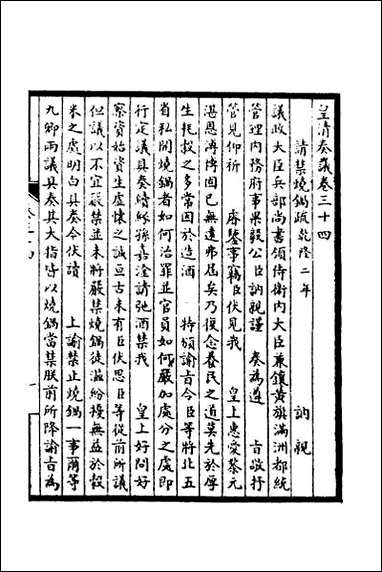 皇清奏議卷三十四
請禁燒鍋疏乾隆二年 訥親
議政大臣兵部尚書領侍衛內大臣兼鑲黃旗滿洲都統
管理內務府事果毅公臣訥親謹 奏為遵 旨敬抒
管見仰祈 睿鑒事竊臣伏見我 皇上惠愛黎元
湛恩溥博固已無遠弗屆矣乃復念養民之道莫先於厚
生耗穀之多常因於造酒 特頒諭旨令臣等將北五
省私開燒鍋者如何治罪並官員如何嚴加處分之處即
行定議具奏續經孫嘉淦請弛酒禁我 皇上好問好
察資始資生虛懷之誠亘古未有臣伏思臣等從前所議
但議以不宜嚴禁並未將嚴禁燒鍋徒滋紛擾無益於穀
米之處明白具奏今伏讀 上諭禁止燒鍋一事爾等
九卿兩議具奏其大指皆以燒鍋當禁朕前所降諭旨為